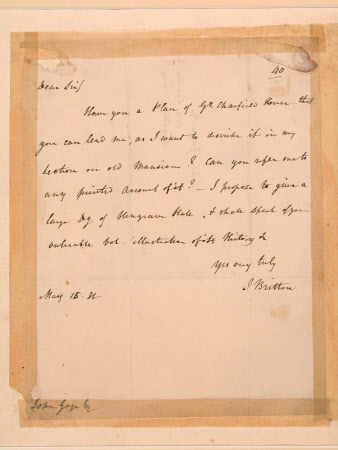 40
Dear Sir/
Have you a Plan of Gt Charfield House that
you can lend me, as I want to describe it in my
section on old Mansions? Can you refer me to
any printed account of it? — I propose to give a
large of Hengrave Hall. & shall speak of your
valuable vol. illustration of its History &
Yrs very truly
J Britton
May 15. 32
John Gage Eq